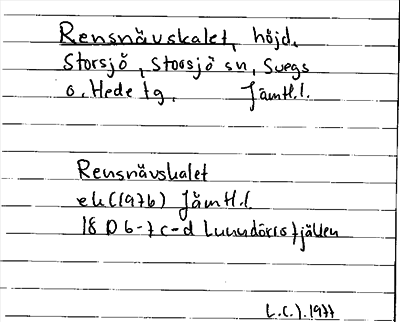 Rensnävskalet, höjd.
Storsjö, Storsjö sn, Svegs
o. Hede tg. Jämtl.l.
Rensnävskalet
ek(1976) Jämtl.l.
18 D 6-7 c-d Lunndörrsfjällen
L.C.J. 1977